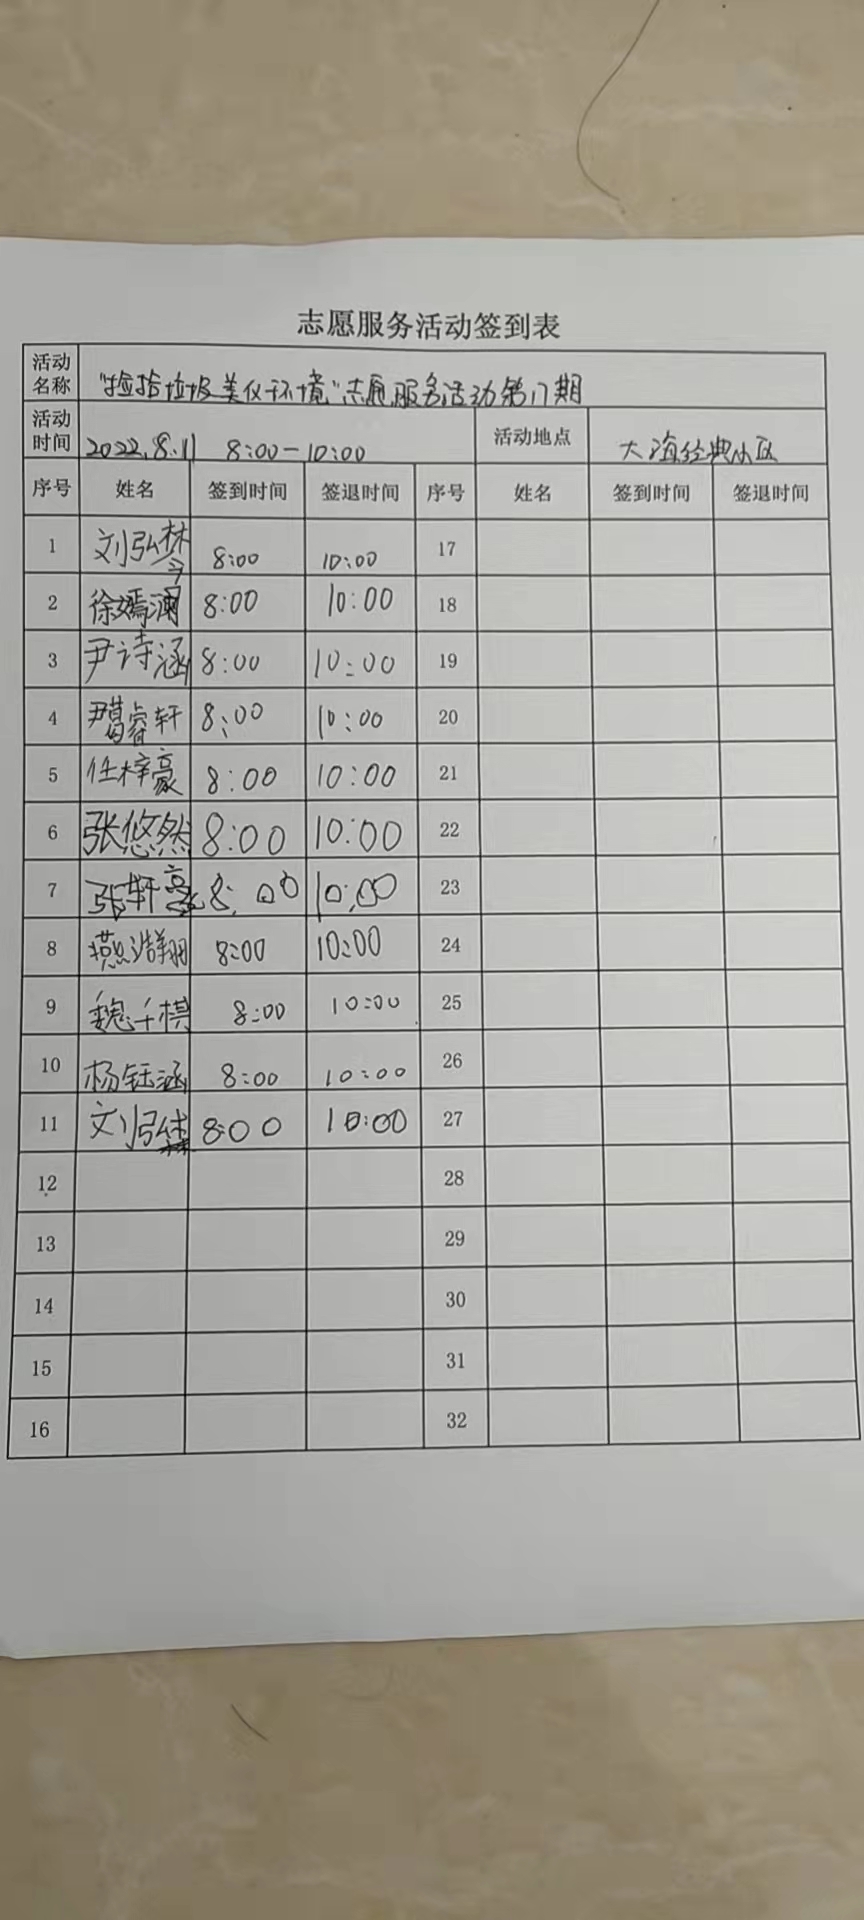 志愿服务活动签到表
活动名称 "捡拾垃圾美化环境"志愿服务活动第17期
活动时间 2022.8.11 8:00-10:00 活动地点 大海经典小区
序号 姓名 签到时间 签退时间 序号 姓名 签到时间 签退时间
1 刘弘梦 8:00 10:00 17
2 徐嫣澜 8:00 10:00 18
3 尹诗涵 8:00 10:00 19
4 尹葛睿轩 8:00 10:00 20
5 任梓豪 8:00 10:00 21
6 张悠然 8:00 10:00 22
7 张轩豪 8:00 10:00 23
8 燕浩翔 8:00 10:00 24
9 魏千棋 8:00 10:00 25
10 杨钰涵 8:00 10:00 26
11 刘弘 8:00 10:00 27
12 28
13 29
14 30
15 31
16 32